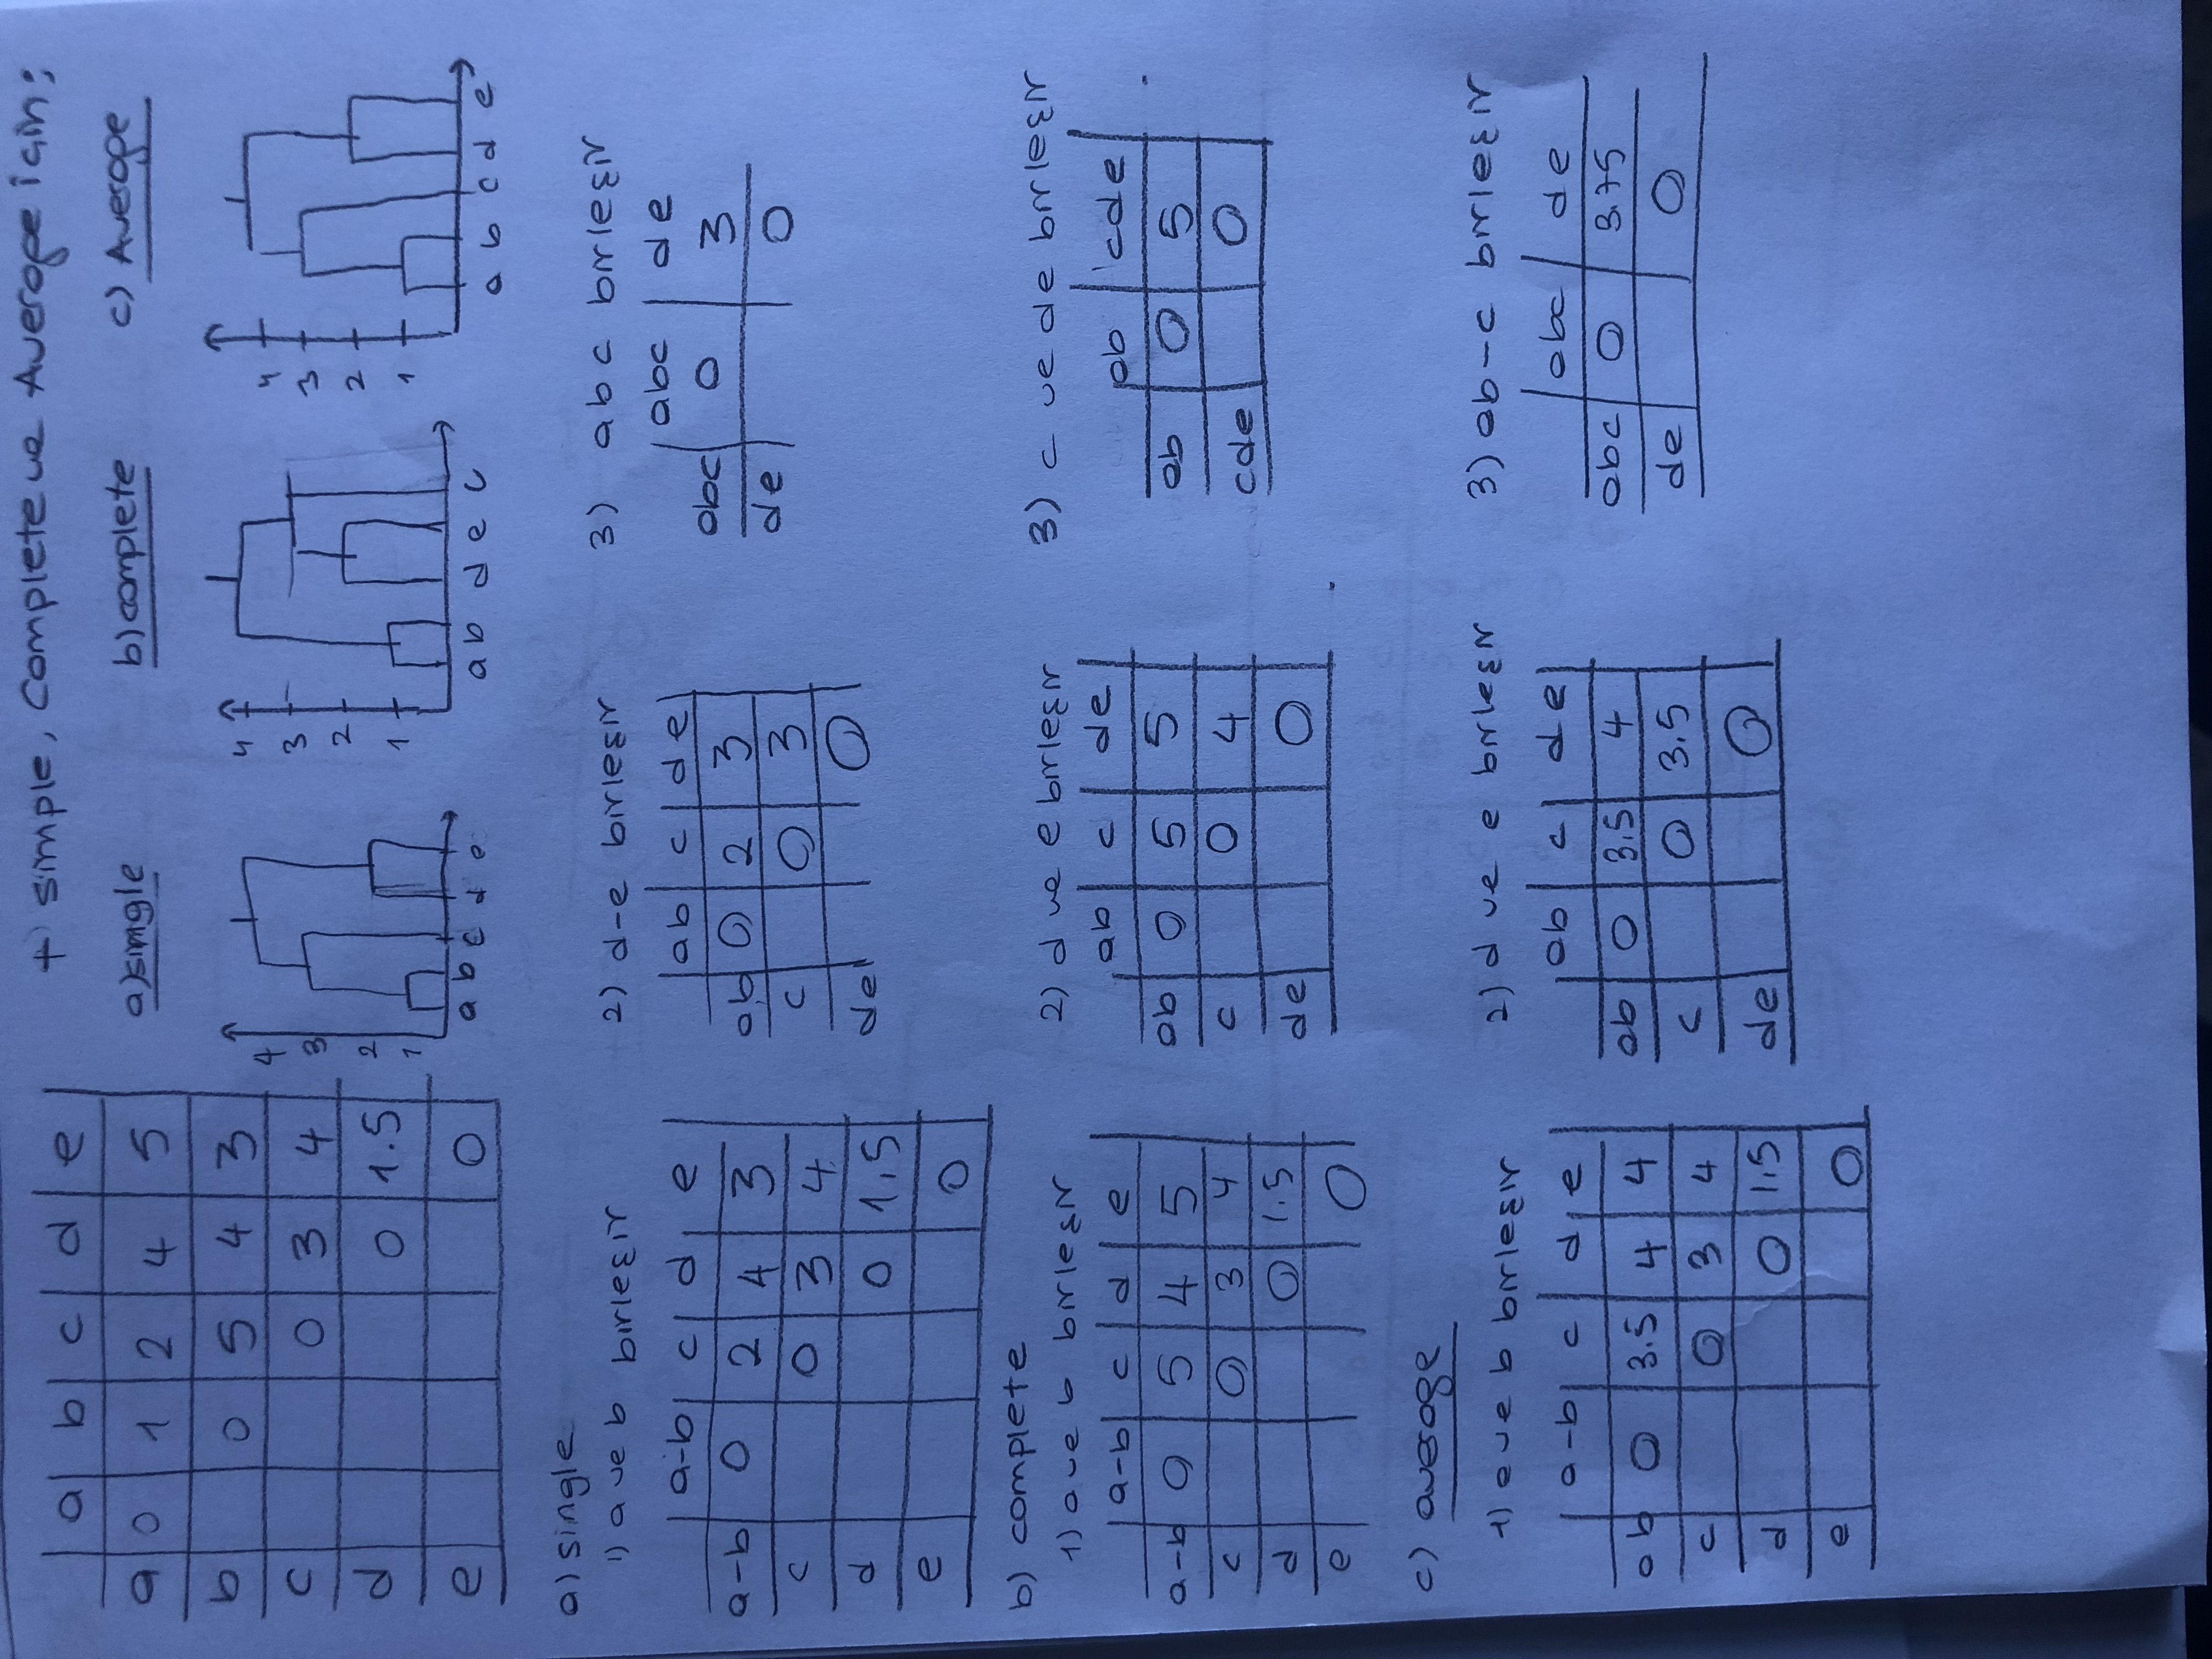 + simple, Complete ve Average için;
a b c d e
a 0 1 2 4 5
b 0 5 4 3
c 0 3 4
d 0 1.5
e 0
a) single
4
3
2
1
a b c d e
b) complete
4
3
2
1
a b d e c
c) Average
4
3
2
1
a b c d e
a) single
1) a ve b birleşir
a-b c d e
a-b 0 2 4 3
c 0 3 4
d 0 1.5
e 0
2) d-e birleşir
ab c de
ab 0 2 3
c 0 3
de 0
3) abc birleşir
abc de
abc 0 3
de 0
b) complete
1) a ve b birleşir
a-b c d e
a-b 0 5 4 5
c 0 3 4
d 0 1.5
e 0
2) d ve e birleşir
ab c de
ab 0 5 5
c 0 4
de 0
3) c ve de birleşir
ab cde
ab 0 5
cde 0
c) average
1) a ve b birleşir
a-b c d e
ab 0 3.5 4 4
c 0 3 4
d 0 1.5
e 0
2) d ve e birleşir
ab c de
ab 0 3.5 4
c 0 3.5
de 0
3) ab-c birleşir
abc de
abc 0 3.75
de 0